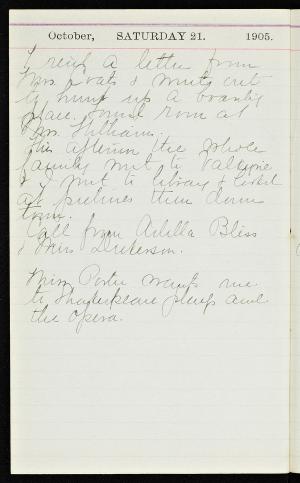 October, SATURDAY 21. 1905.
I rec'd a letter from
Mrs. Coats & went out
to hunt up a boarding
place. Found room at
Mrs.
This afternoon the whole
family went to
& I went to library & looked
at pictures then down
town.
Call from Adella Bliss
& Miss Dickerson.
Miss Porter wants me
to Shakespeare plays and
the Opera.